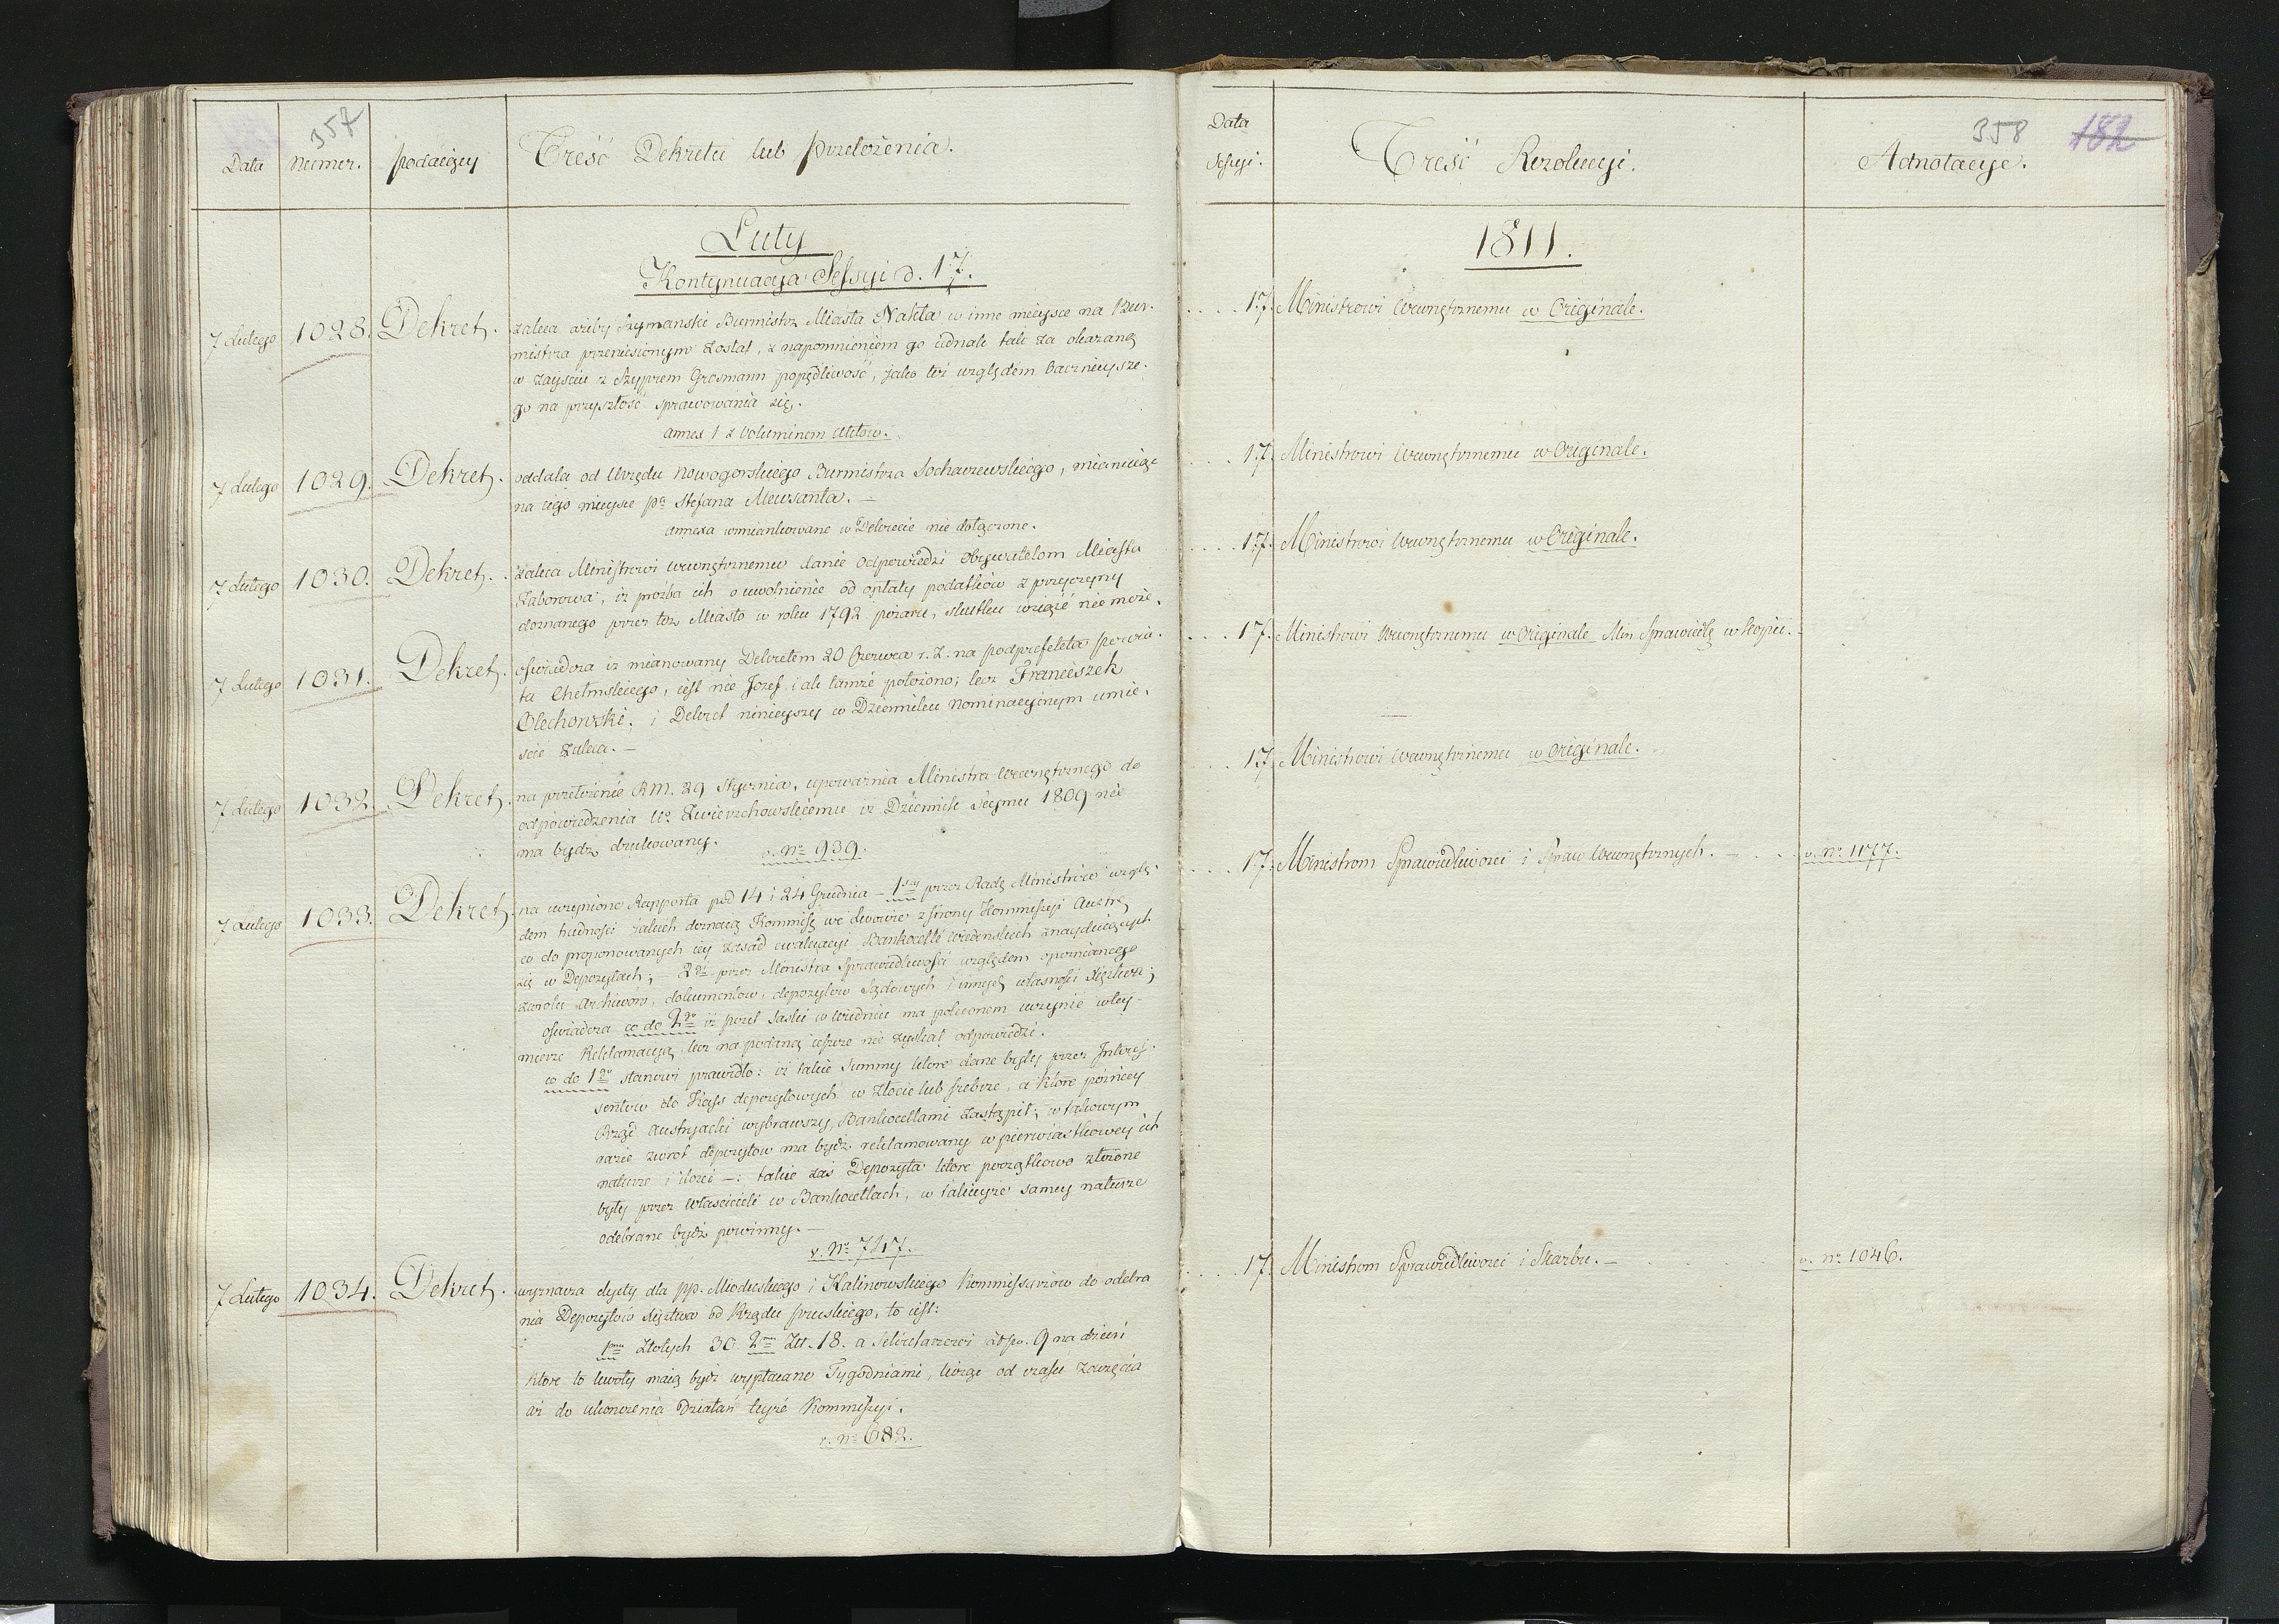 357
Data
Numer.
podaiący
Treść Dekretu lub przełożenia.
Luty
Kontynuacya Sessyi d. 17.
7 Lutego 1028. Dekret. zaleca ażeby Szymanski Burmistrz Miasta Nakła w inne mieysce na Bur-
mistrza przeniesionym został, z napomnieniem go iednak tak za okazaną
w zayściu z Szyprem Grosmann popędliwość, jako też względem bacznieysze-
go na przyszłość sprawowania się.
annex 1 z Voluminem Aktow.
7 Lutego 1029. Dekret. oddala od Urzędu Nowogorskiego Burmistrza Sochaczewskiego, mianuiąc
na iego mieysce pa Stefana
annexa wmiankowane w Dekrecie nie dołączone.
7 Lutego 1030. Dekret. zaleca Ministrowi wewnętrznemu danie odpowiedzi Obywatelom Miasta
Zaborowa, iż prośba ich o uwolnienie od opłaty podatków z przyczyny
doznanego przez toż Miasto w roku 1792 pożaru, skutku wziąść nie może.
7 Lutego 1031. Dekret. oświadcza iż mianowany Dekretem 20 Czerwca r. z. na podprefekta powia-
tu Chełmskiego, iest nie Jozef, iak tamże położono; lecz Franciszek
Olechowski. i Dekret ninieyszy w Dzienniku Nominacyinym umie-
scić zaleca. —
7 Lutego 1032. Dekret. na przełożenie R.M. 29 Stycznia, upoważnia Ministra Wewnętrznego do
odpowiedzenia Uo Zwierzchowskiemu iż Dziennik Seymu 1809 nie
ma bydź drukowany.
v. No 939.
7 Lutego 1033. Dekret. na uczynione Rapporta pod 14 i 24 Grudnia — 1szy przez Radę Ministrów wzglę-
dem trudności iakich doznaią Kommiss: we Lwowie z strony Kommissyi Austr:
co do proponowanych iey zasad ewaluacyi Bankocetli Wiedenskich znayduiących
się w Depozytach; — 2gi przez Ministra Sprawiedliwości względem opoznianego
zwrotu Archiwów, dokumentow, depozytów Sądowych i innych własności Xięstwa;
oświadcza co do 2go iż poseł Saski w Wiedniu ma poleconem uczynić w tey-
mierze Reklamacyą, lecz na podaną ieszcze nie zyskał odpowiedzi.
co do 1go stanowi prawidło: iż takie Summy ktore dane były przez Interes-
sentow do Kass depozytowych w Złocie lub srebrze, a ktore poźniey
Rząd Austryacki wybrawszy, Bankocetlami zastąpił; w takowym
razie zwrot depozytow ma bydź reklamowany w pierwiastkowey ich
naturze i ilości —: takie zaś Depozyta ktore początkowo złożone
były przez właścicieli w Bankocetlach, w takieyże samey naturze
odebrane bydź powinny. —
v. No 747.
7 Lutego 1034. Dekret. wyznacza dyety dla pp. Mioduskiego i Kalinowskiego Kommissarzow do odebra
nia Depozytów Xięstwa od Rządu pruskiego, to iest:
1mu Złotych 30. 2mu Zł. 18. a Sekretarzowi 9 na dzień
ktore to kwoty maią bydź wypłacane Tygodniami, licząc od czasu zaczęcia
aż do ukonczenia Działań teyże Kommissyi.
v. No 682.
358 182
Data
Sessyi.
Treść Rezolucyi.
Adnotacye.
1811.
17. Ministrowi Wewnętrznemu w Originale.
17. Ministrowi Wewnętrznemu w Originale.
17. Ministrowi Wewnętrznemu w Originale.
17. Ministrowi Wewnętrznemu w Originale Min. Sprawiedlę w kopii.
17. Ministrowi Wewnętrznemu w Originale.
17. Ministrom Sprawiedliwości i Spraw Wewnętrznych. — v. No 1177.
17. Ministrom Sprawiedliwości i Skarbu. — v. No 1046.